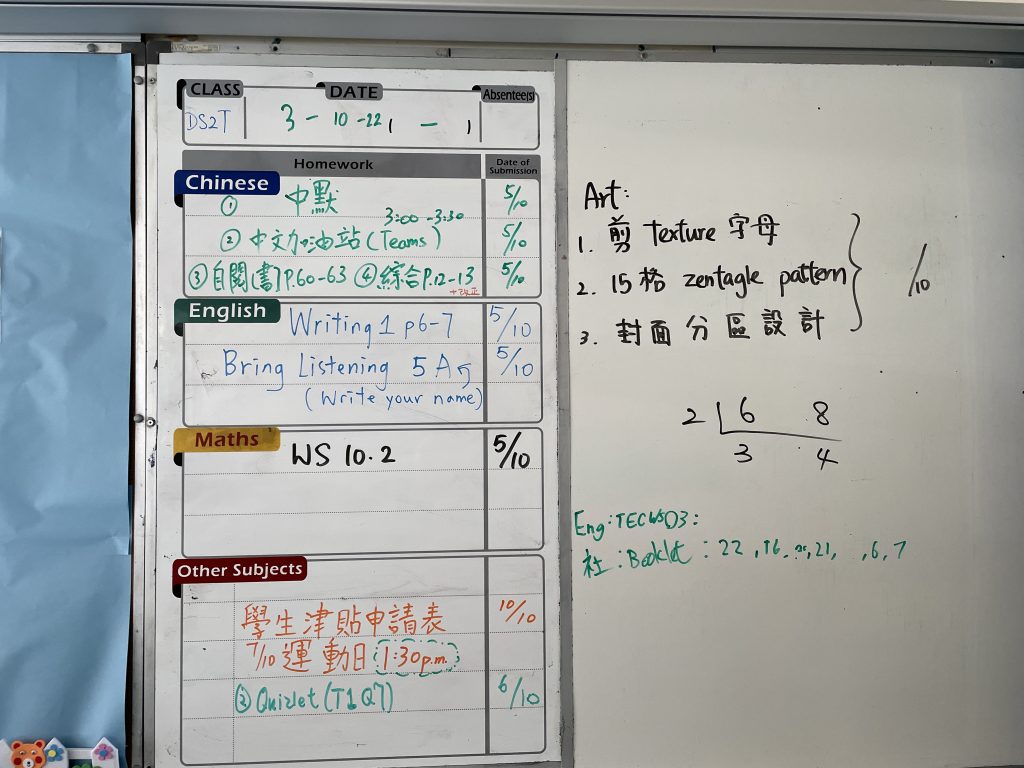 CLASS DATE Absentee(s)
DS2T 3-10-22 1 - 1
Homework Date of Submission
Chinese
① 中默 5/10
3:00-3:30
② 中文加油站(Teams) 5/10
③自閱[書]P.60-63 ④綜合P.12-13 5/10
+改正
English
Writing 1 p6-7 5/10
Bring Listening 5A 5/10
(Write your name)
Maths
WS 10.2 5/10
Other Subjects
學生津貼申請表 10/10
7/10 運動日 1:30p.m.
Quizlet(T1Q7) 6/10
Art:
1. 剪 texture 字母
2. 15格 zentagle pattern /10
3. 封面分區設計
2 6 8
3 4
Eng:TECWS03:
社:Booklet: 22, 16, 21, ,6,7